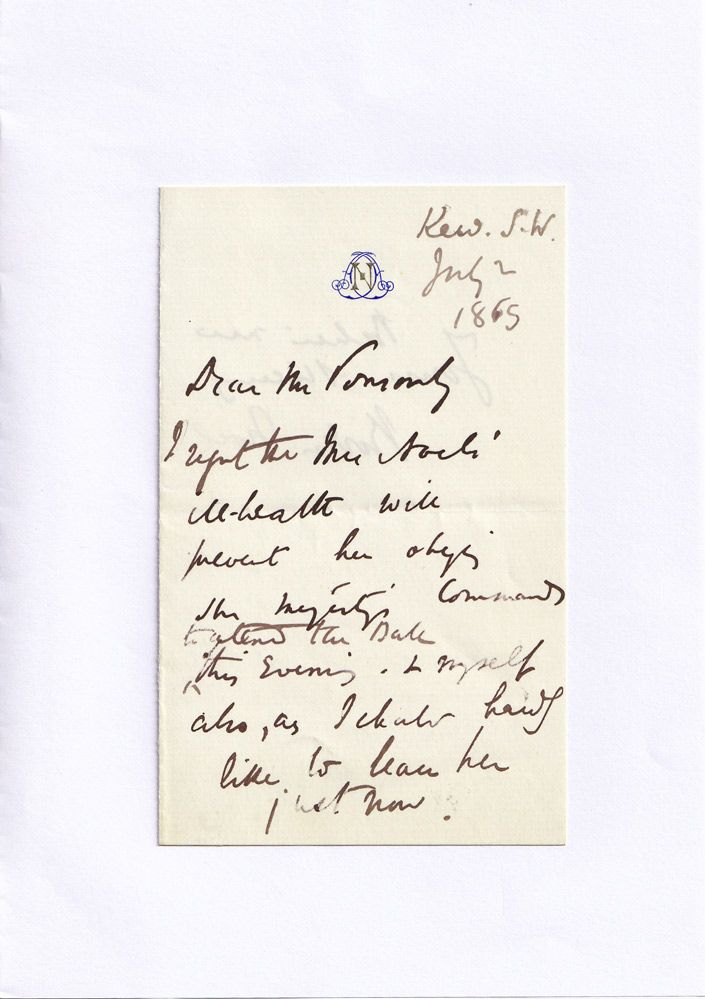 Kew. S.W.
July 2
1865
N
Dear Mr Ponsonby
I regret that Mrs
ill-health will
prevent her obeying
Her Majesty's Commands
to attend the Ball
this Evening. & myself
also, as I should hardly
like to leave her
just now.